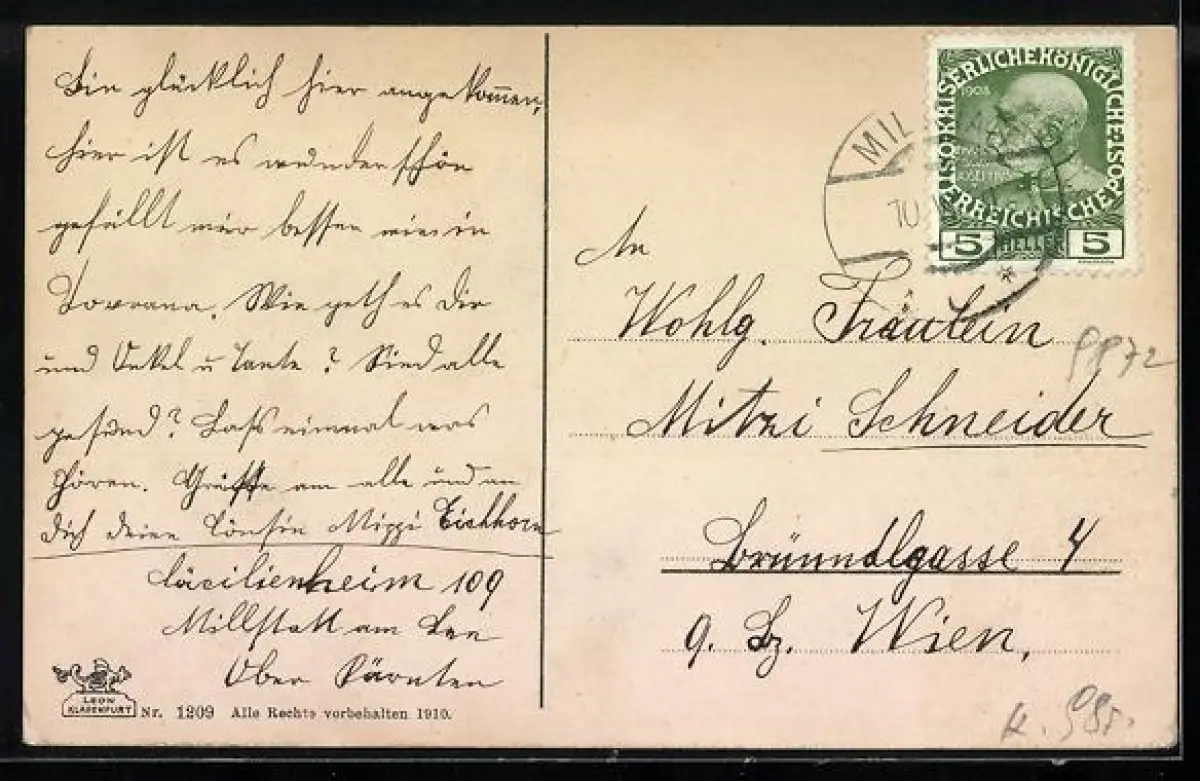 Bin glücklich hier angekommen,
hier ist es wunderschön
gefällt mir besser wie in
Lovrana. Wie geth es Dir
und Onkel u Tante? Sind alle
gesund? Lass einmal was
hören. Grüsse am alle und an
Dich deine Cousin Mizzi Eichhorn
Cäcilienheim 109
Millstatt am See
Ober Kärnten
LEON
KLAGENFURT
Nr. 1209 Alle Rechte vorbehalten 1910.
KAISERLICHE KÖNIGLICHE ÖSTERREICHISCHE POST
1908
5 HELLER 5
MIL
10
An
Wohlg. Fräulein
Mitzi Schneider
Brünndlgasse 4
9. Bz. Wien,